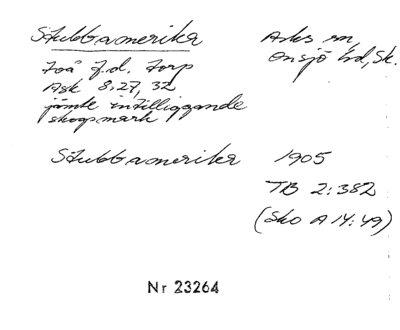 Stubbamerika
Asks sn
Onsjö hd, Sk.
två f.d. torp
Ask 8, 27, 32
jämte intilliggande
skogsmark
Stubbamerika 1905
TB 2:382
(Sko A 14:49)
Nr 23264